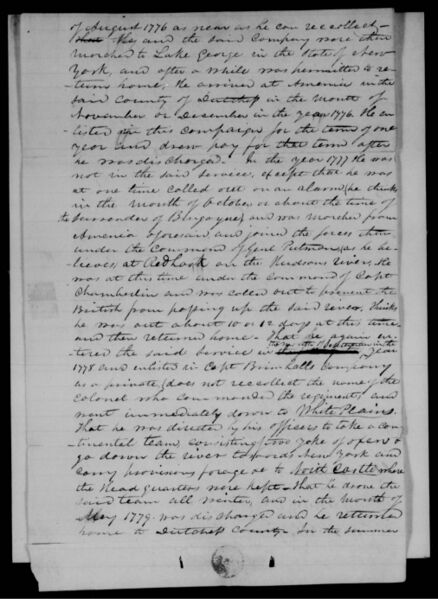 of August 1776 as near as he can recollect
that he and the said Company were then
marched to Lake George in the State of New
York, and after a while was permitted to re-
turn home, He arrived at Amenia in the
said County of Dutchess in the month of
November or December in the year 1776. He en-
listed this Campaign for the term of one
year and drew pay for that term after
he was discharged. In the year 1777 He was
not in the said service, except that he was
at one time called out on an alarm, he thinks
in the month of October or about the time of
the surrender of Burgoyne, and was marched from
Amenia aforesaid and joined the forces then
under the Command of Genl Putman, as he be-
lieves, at Redhook on the Hudsons river, He
was at this time under the command of Capt
Chamberlin and was called out to prevent the
British from passing up the said river, thinks
he was out about 10 or 12 days at this time
and then returned home. That he again en-
tered the said service in the month of in the year
1778 and enlisted in Capt Brimhalls Company
as a private, does not recollect the name of the
Colonel who commanded the regiment, and
went immediately down to White Plains.
That he was directed by his officers to take a con-
tinental team, consisting two yoke of oxen &
go down the river towards New York and
carry provisions forage &c to where
the Head quarters were kept. That he drove the
said team all winter, and in the month of
May 1779 was discharged and he returned
home to Dutchess County. In the summer